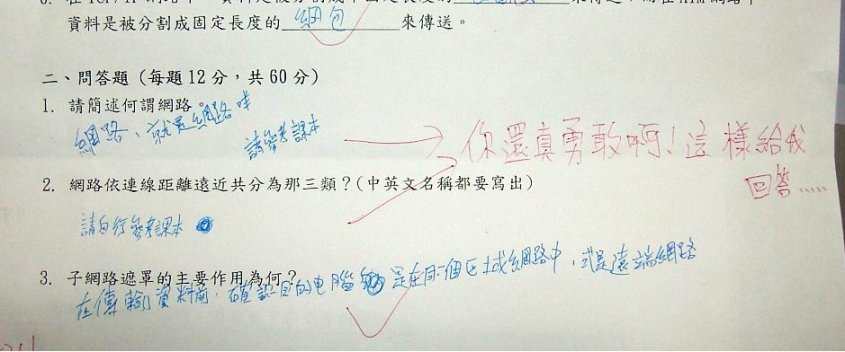 資料是被分割成固定長度的 網包 來傳送。
二、問答題（每題12分，共60分）
1. 請簡述何謂網路。
網路、就是網路
請參考課本
你還真勇敢啊!這樣給我
回答.....
2. 網路依連線距離遠近共分為那三類？(中英文名稱都要寫出)
請自行參考課本
3. 子網路遮罩的主要作用為何？
在傳輸資料前，確認目的电腦 是在同一個區域網路中，或是遠端網路